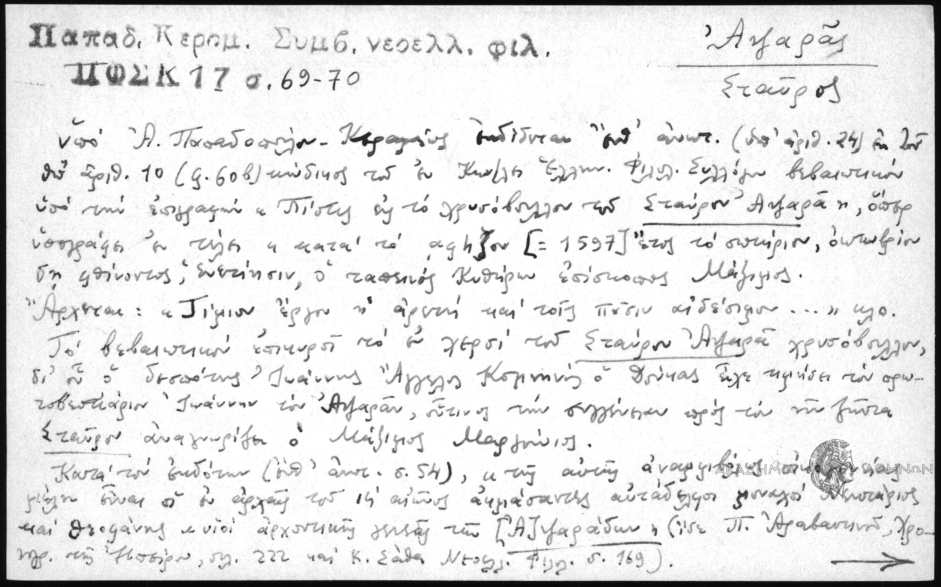 Παπαδ. Κεραμ. Συμβ. νεοελλ. φιλ.
ΠΦΣΚ 17 σ. 69-70
Ἀψαρᾶς
Σταῦρος
ὑπὸ Ἀ. Παπαδοπούλου-Κεραμέως ἐκδίδεται (ὑπ' ἀριθ. 24) ἐκ τοῦ
ὑπ' ἀριθ. 10 (φ. 60β) κώδικος τοῦ ἐν Κπόλει Ἑλλην. Φιλολ. Συλλόγου βεβαιωτικὸν
ὑπὸ τὴν ἐπιγραφὴν « Πίστις εἰς τὸ χρυσόβουλλον τοῦ Σταύρου Ἀψαρᾶ », ὅπερ
ὑπογράφει ἐν τέλει « κατὰ τὸ αφϟζον [= 1597] ἔτος τὸ σωτήριον, ὀκτωβρίου
φθίνοντος, Ἐνετίησιν, ὁ ταπεινὸς Κυθήρων ἐπίσκοπος Μάξιμος.
Ἄρχεται: « Τίμιον ἔργον ἡ ἀρετὴ καὶ τοῖς πᾶσιν αἰδέσιμον ... » κλπ.
Τὸ βεβαιωτικὸν ἐπικυροῖ τὸ ἐν χερσὶ τοῦ Σταύρου Ἀψαρᾶ χρυσόβουλλον,
δι' οὗ ὁ δεσπότης Ἰωάννης Ἄγγελος Κομνηνὸς ὁ Δούκας εἶχε τιμήσει τὸν πρω-
τοβεστιάριον Ἰωάννην τὸν Ἀψαρᾶν, οὗτινος τὴν συγγένειαν πρὸς τὸν
Σταῦρον ἀναγνωρίζει ὁ Μάξιμος Μαργούνιος.
Κατὰ τὸν ἐκδότην (ἔνθ' ἀνωτ. σ. 54), « τῆς αὐτῆς ἀναμφιβόλως οἰκογενείας
μέλη εἶναι οἱ ἐν ἀρχαῖς τοῦ αἰῶνος ἀκμάσαντες αὐτάδελφοι μοναχοὶ Νεκτάριος
καὶ Θεοφάνης « υἱοὶ ἀρχοντικῆς γενεᾶς τῶν [Ἀ]ψαράδων » (ἴδε Π. Ἀραβαντινοῦ, Χρο-
νογρ. τῆς Ἠπείρου, σελ. 222 καὶ Κ. Σάθα Νεοελλ. Φιλολ. σ. 169).